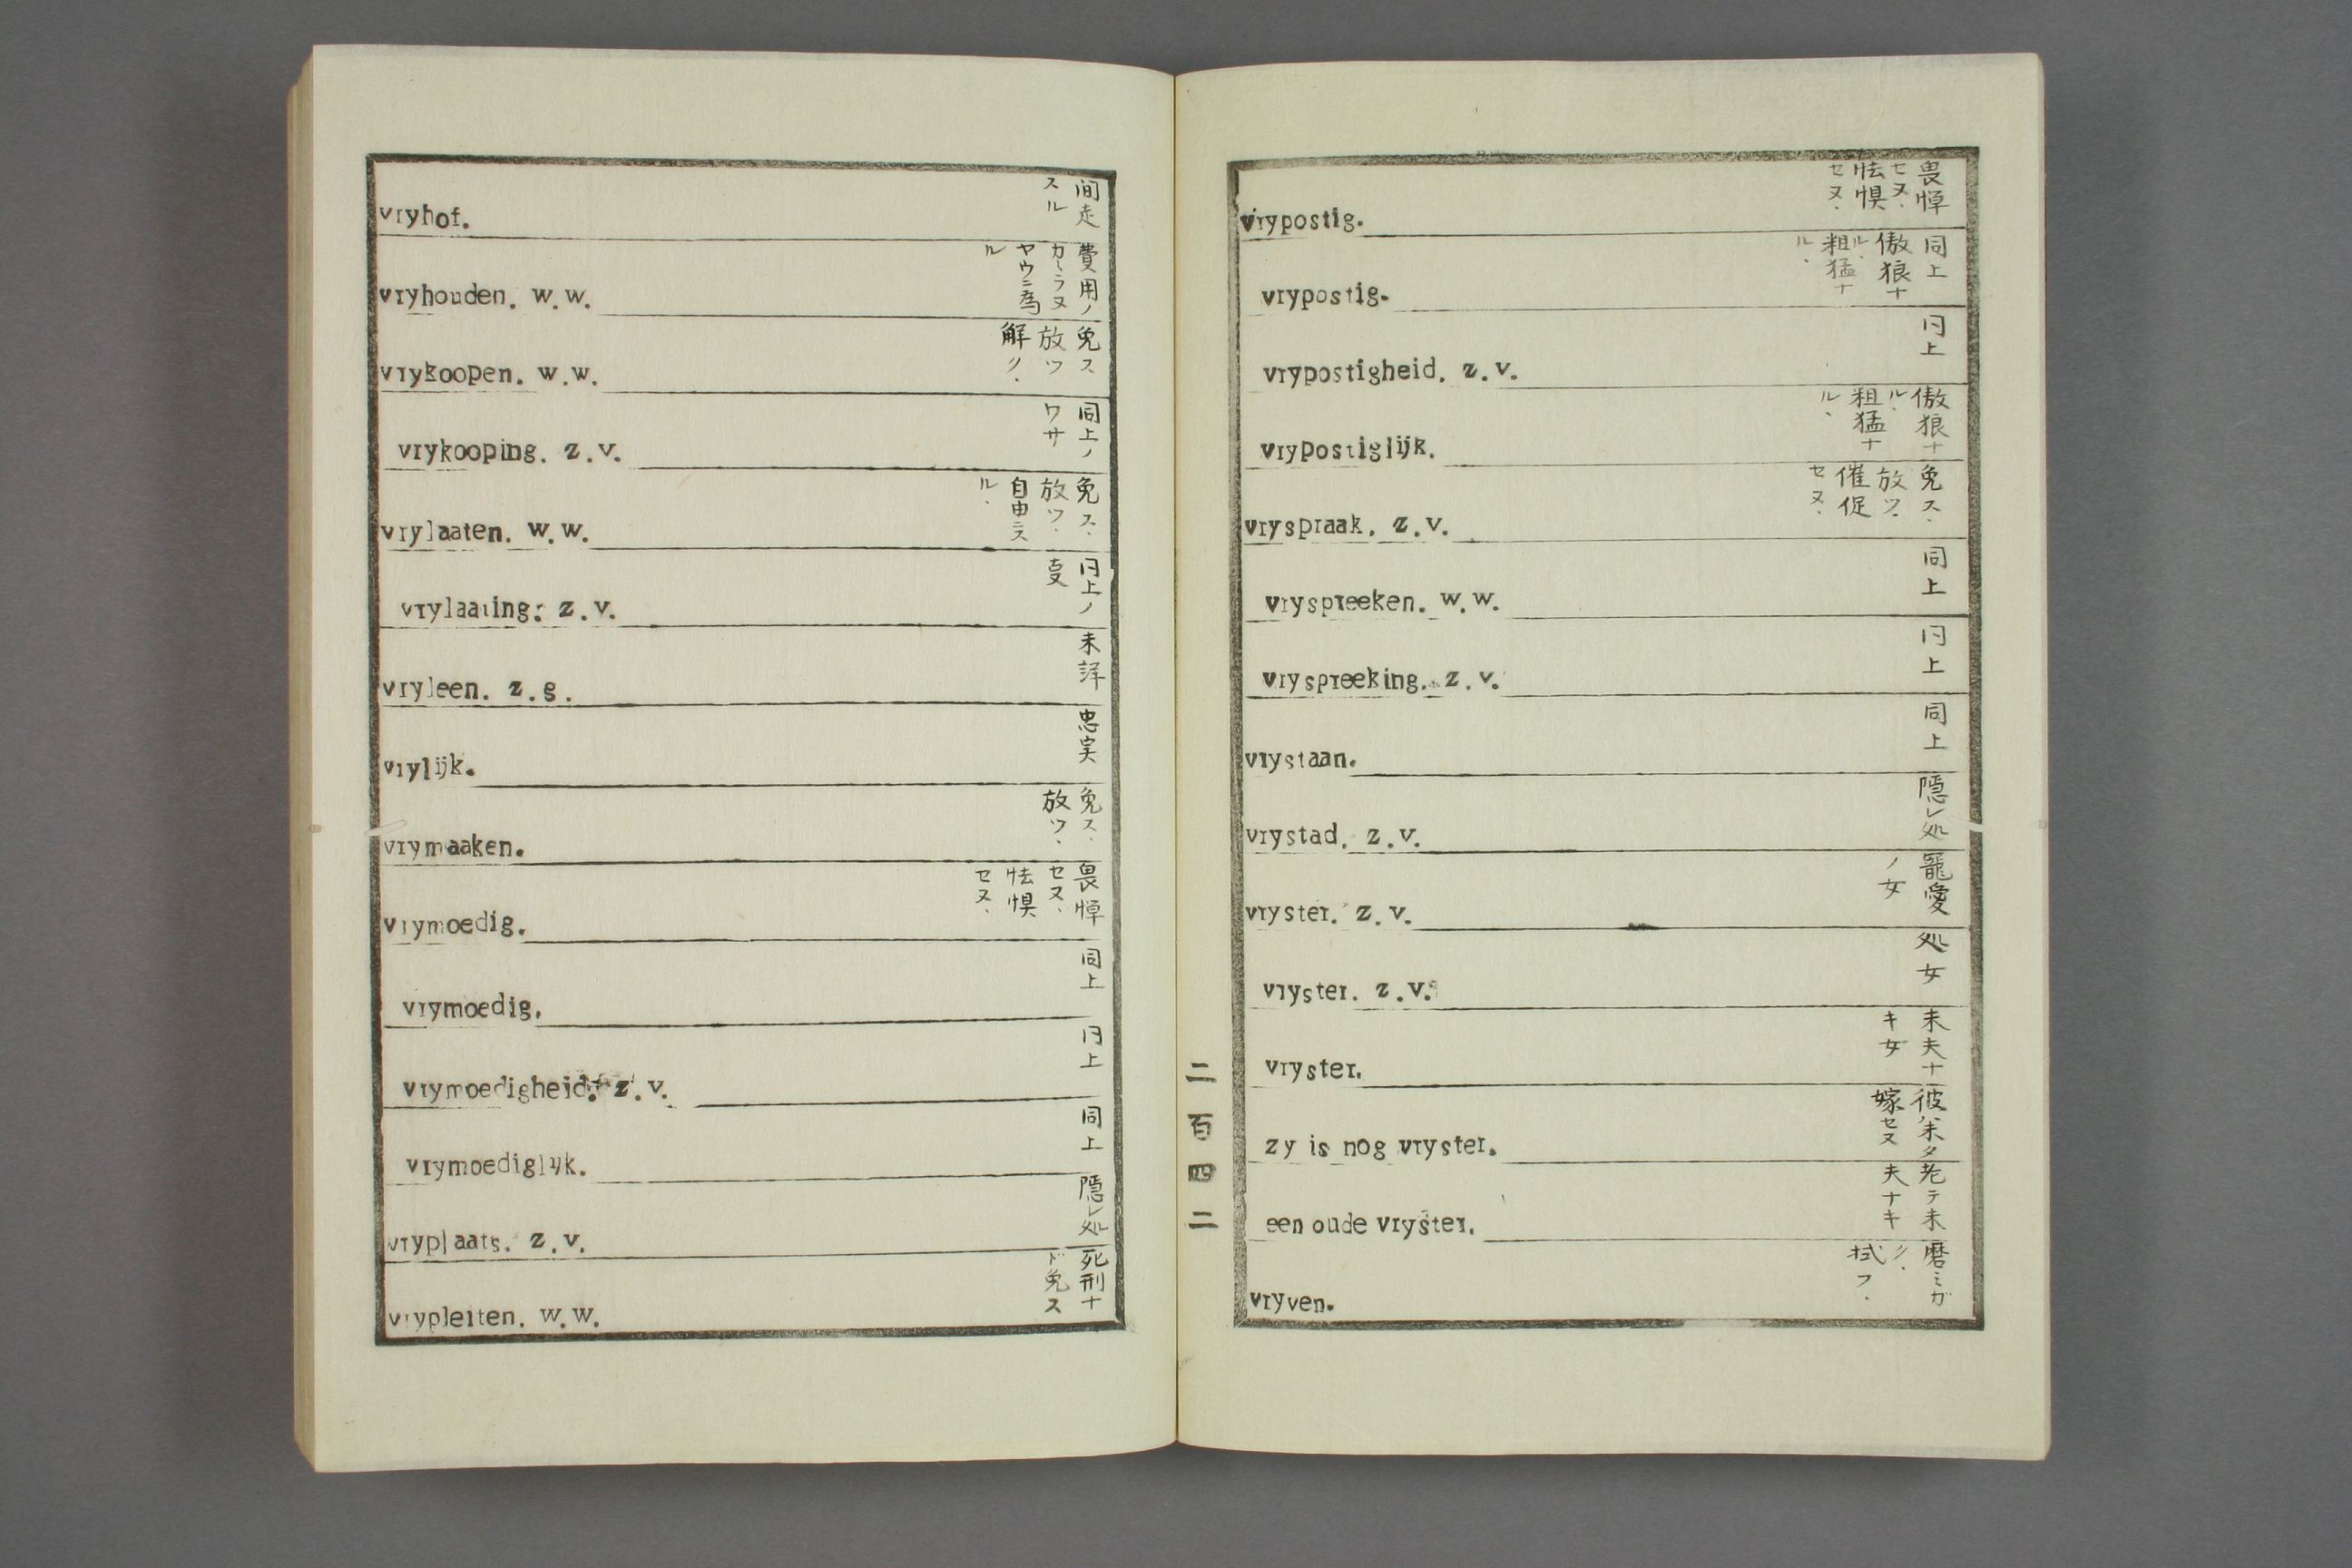 vryhof. 间走スル
vryhouden. w.w. 費用ノカヽラヌヤウニ為ル
vrykoopen. w.w. 免ス 放ツ 解ク.
vrykooping. z.v. 同上ノワサ
vrylaaten. w.w. 免ス、放ツ、自由ニスル.
vrylaating: z.v. 同上ノ叓
vryleen. z.g. 未詳
vrylijk. 忠実
vrymaaken. 免ス、放ツ、
vrymoedig. 畏憚セヌ、怯惧セヌ、
vrymoedig. 同上
vrymoedigheid. z.v. 同上
vrymoediglijk. 同上
vryplaats. z.v. 隠レ処
vrypleiten. w.w. 死刑ナド免ス
vrypostig. 畏憚セヌ、怯惧セヌ、
vrypostig. 同上 傲狼ナル、粗猛ナル、
vrypostigheid. z.v. 同上
vrypostiglijk. 傲狼ナル、粗猛ナル、
vryspraak. z.v. 免ス、放ツ、催促セヌ、
vryspreeken. w.w. 同上
vryspreeking. z.v. 同上
vrystaan. 同上
vrystad. z.v. 隠レ処
vryster. z.v. 寵愛ノ女
vryster. z.v. 処女
vryster. 未夫ナキ女
zy is nog vryster. 彼ハ未タ嫁セヌ
een oude vryster. 老テ未夫ナキ
vryven. 磨ミガク. 拭フ.
二百四二